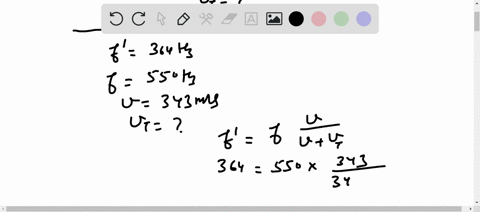 f' = 364 Hz
f = 550 Hz
v = 343 m/s
v_T = ?
f' = f v/(v + v_T)
364 = 550 × 343/34